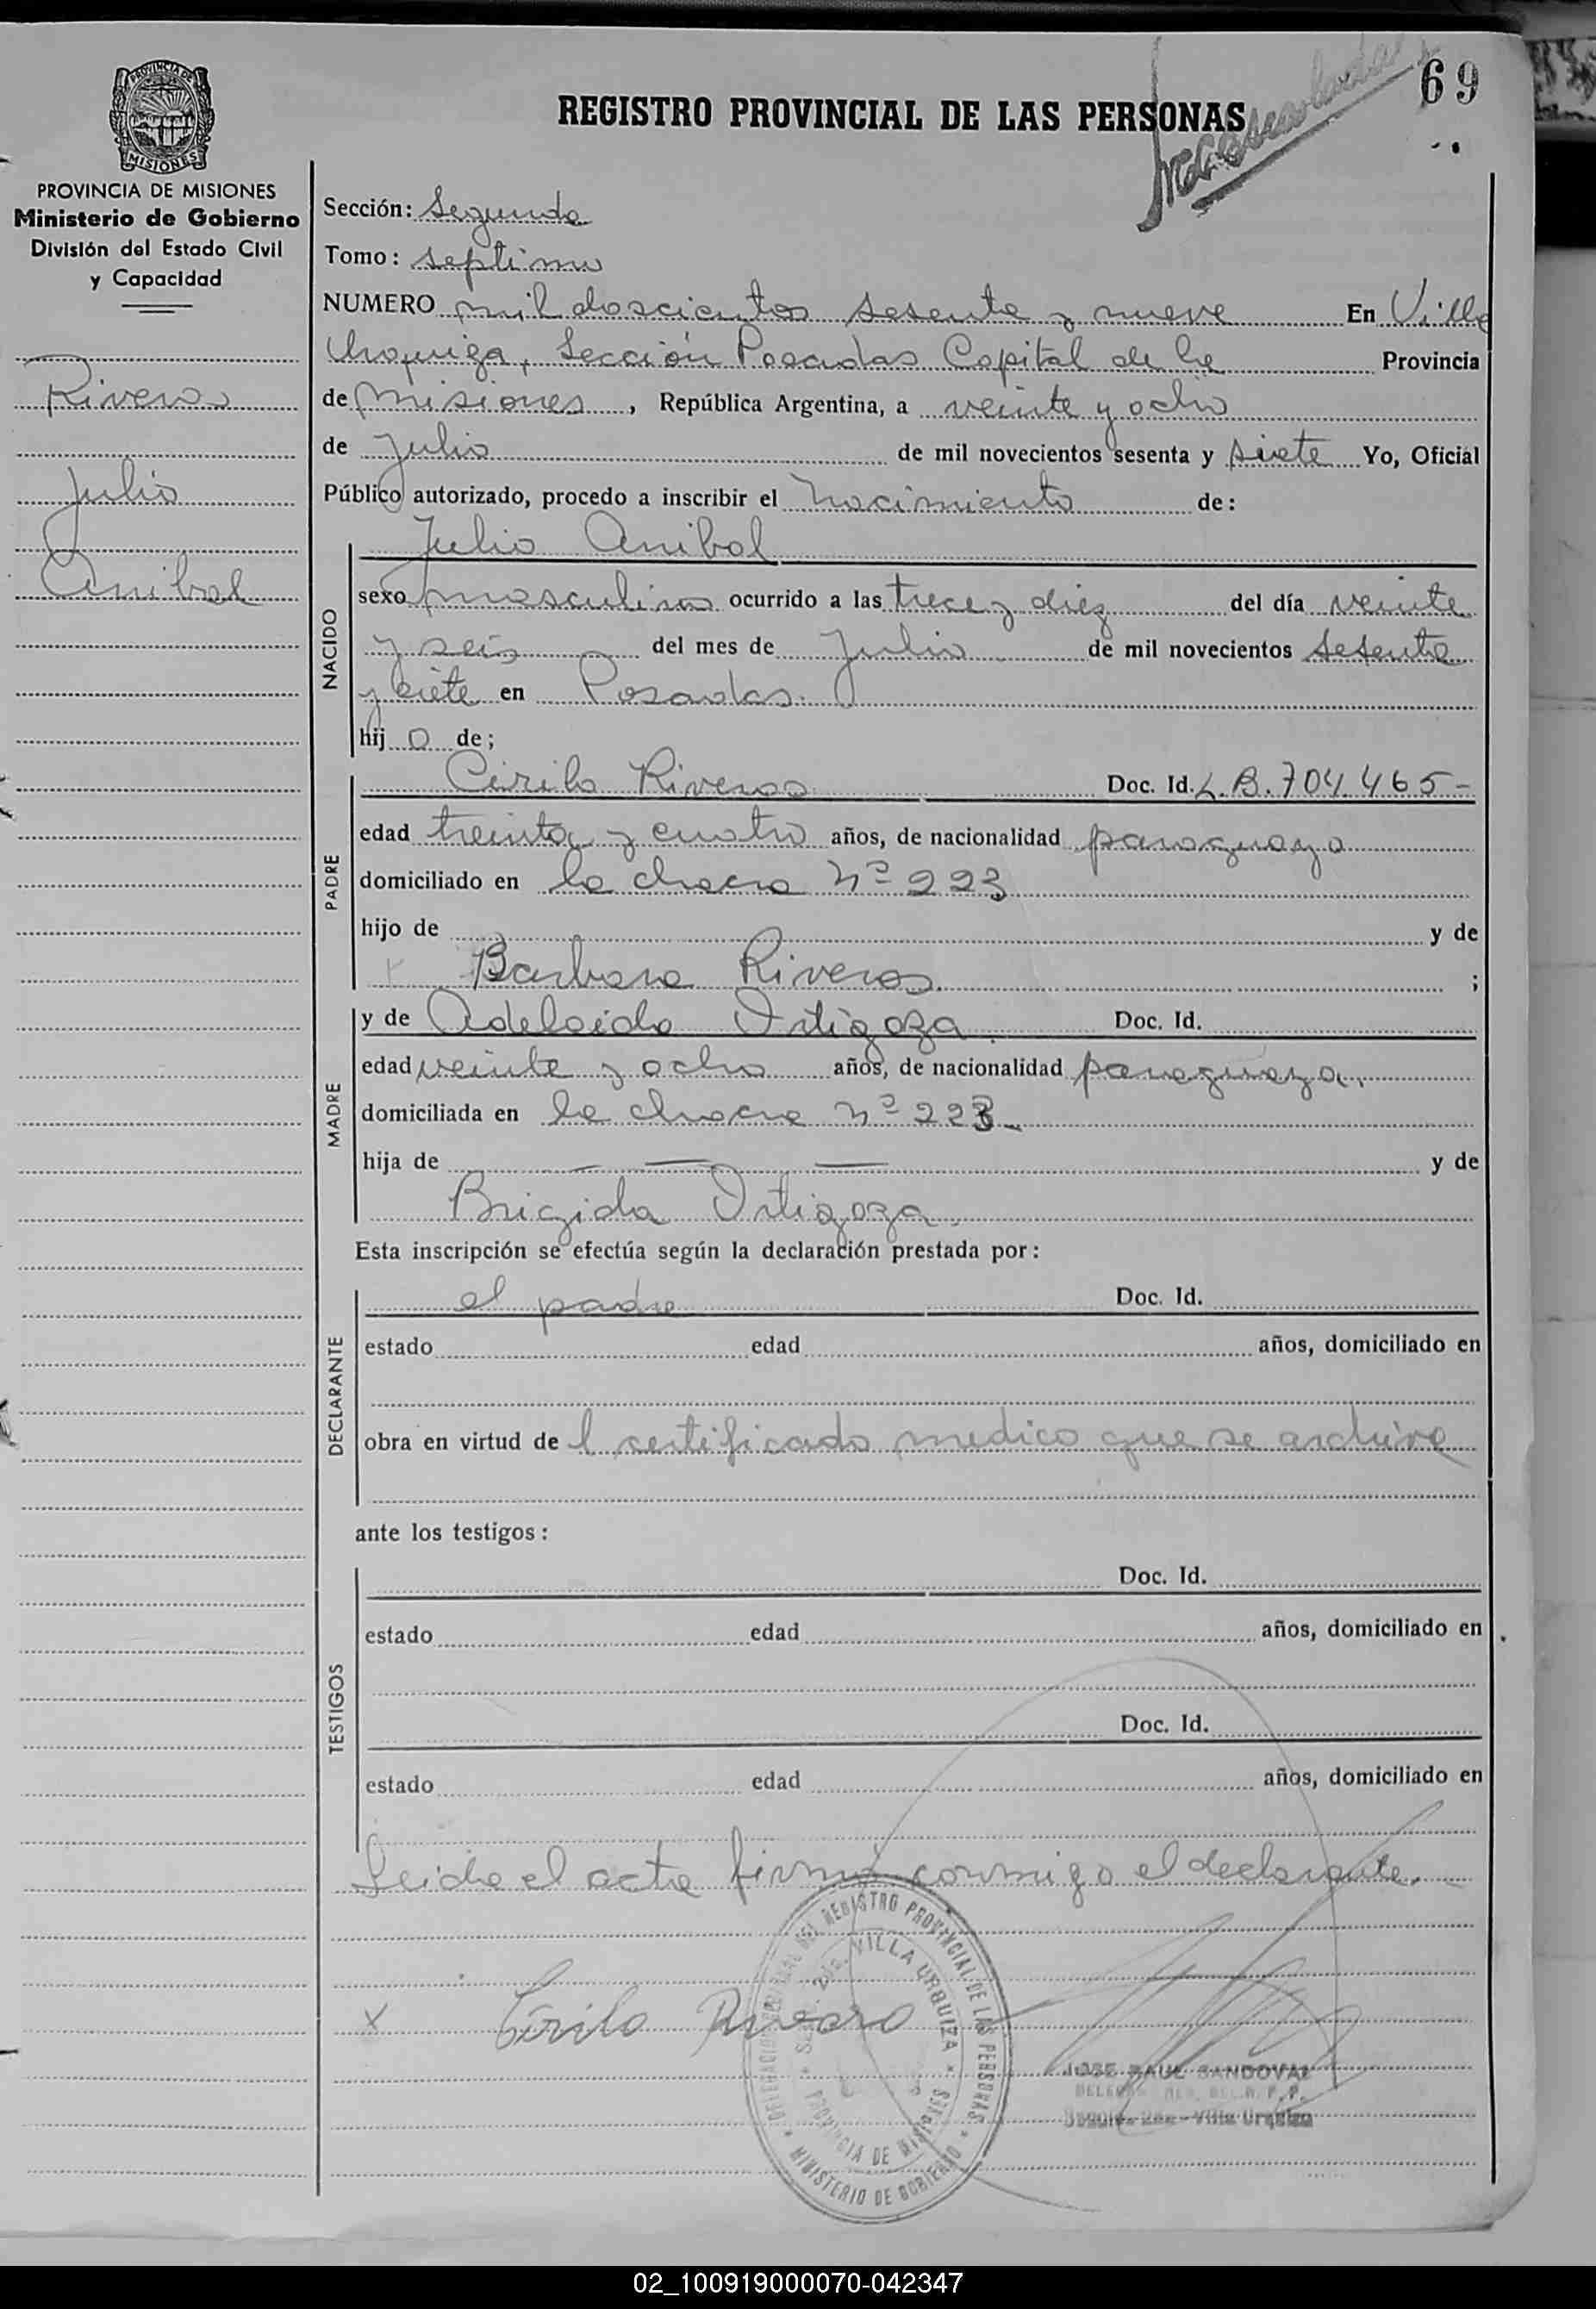 69
REGISTRO PROVINCIAL DE LAS PERSONAS
PROVINCIA DE
MISIONES
PROVINCIA DE MISIONES
Ministerio de Gobierno
División del Estado Civil
y Capacidad
Riveros
Julio
Anibal
Sección: Segunda
Tomo: septimo
NUMERO mil doscientos sesenta y nueve En Villa
Urquiza, Sección Posadas Capital de la Provincia
de Misiones, República Argentina, a veinte y ocho
de Julio de mil novecientos sesenta y siete Yo, Oficial
Público autorizado, procedo a inscribir el nacimiento de:
NACIDO
Julio Anibal
sexo masculino ocurrido a las trece y diez del día veinte
y seis del mes de Julio de mil novecientos sesenta
y siete en Posadas.
hij o de;
PADRE
Cirilo Riveros Doc. Id. L.B. 704.465-
edad treinta y cuatro años, de nacionalidad paraguaya
domiciliado en la chacra Nº 223
hijo de y de
Barbara Riveros. ;
MADRE
y de Adelaida Ortigoza Doc. Id.
edad veinte y ocho años, de nacionalidad paraguaya.
domiciliada en la chacra Nº 223-
hija de — — — y de
Brigida Ortigoza.
Esta inscripción se efectúa según la declaración prestada por:
DECLARANTE
el padre Doc. Id.
estado edad años, domiciliado en
obra en virtud de l certificado medico que se archiva
ante los testigos:
TESTIGOS
Doc. Id.
estado edad años, domiciliado en
Doc. Id.
estado edad años, domiciliado en
Leida el acta firma conmigo el declarante.
x Cirilo Rivero
DEL REGISTRO PROVINCIAL DE LAS PERSONAS
VILLA URQUIZA
PROVINCIA DE MISIONES
MINISTERIO DE GOBIERNO
JOSE RAUL SANDOVAL
Villa Urquiza
02_100919000070-042347